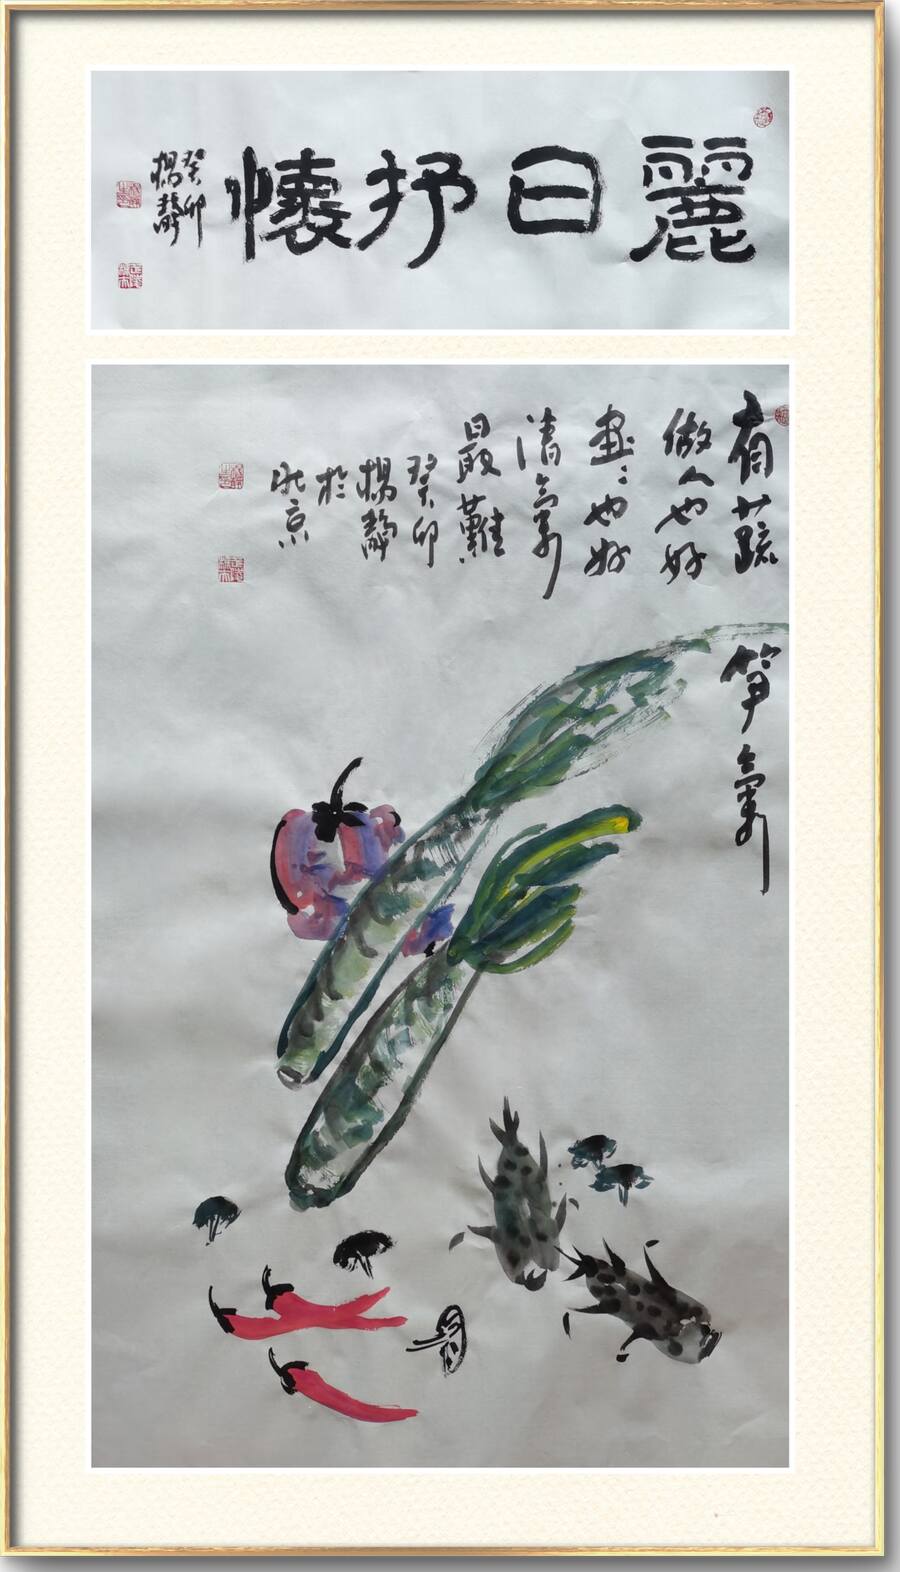 麗日抒懷
癸卯
楊靜
有蔬笋氣
做人也好
畫畫也好
清氣
最難
癸卯
楊靜
於
北京